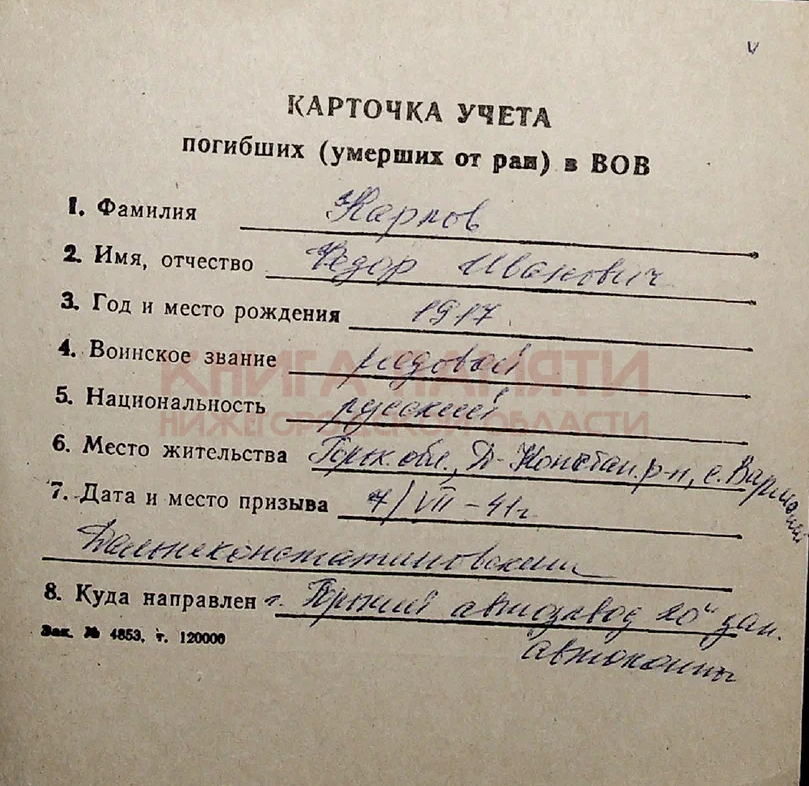 КАРТОЧКА УЧЕТА
погибших (умерших от ран) в ВОВ
1. Фамилия Карпов
2. Имя, отчество Федор Иванович
3. Год и место рождения 1917
4. Воинское звание рядовой
КНИГА ПАМЯТИ
5. Национальность русский
НИЖЕГОРОДСКОЙ ОБЛАСТИ
6. Место жительства Горьк. обл., Д-Констан. р-н, с.
7. Дата и место призыва 7/VII-41г.
8. Куда направлен г. Горький автозавод 20й зап.
Зак. № 4853, т. 120000